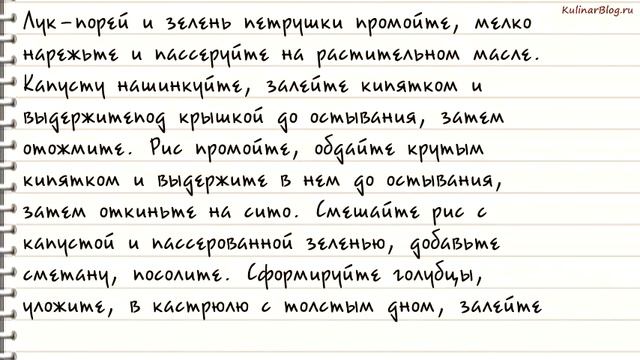 KulinarBlog.ru
Лук-порей и зелень петрушки промойте, мелко
нарежьте и пассеруйте на растительном масле.
Капусту нашинкуйте, залейте кипятком и
выдержитепод крышкой до остывания, затем
отожмите. Рис промойте, обдайте крутым
кипятком и выдержите в нем до остывания,
затем откиньте на сито. Смешайте рис с
капустой и пассерованной зеленью, добавьте
сметану, посолите. Сформируйте голубцы,
уложите, в кастрюлю с толстым дном, залейте